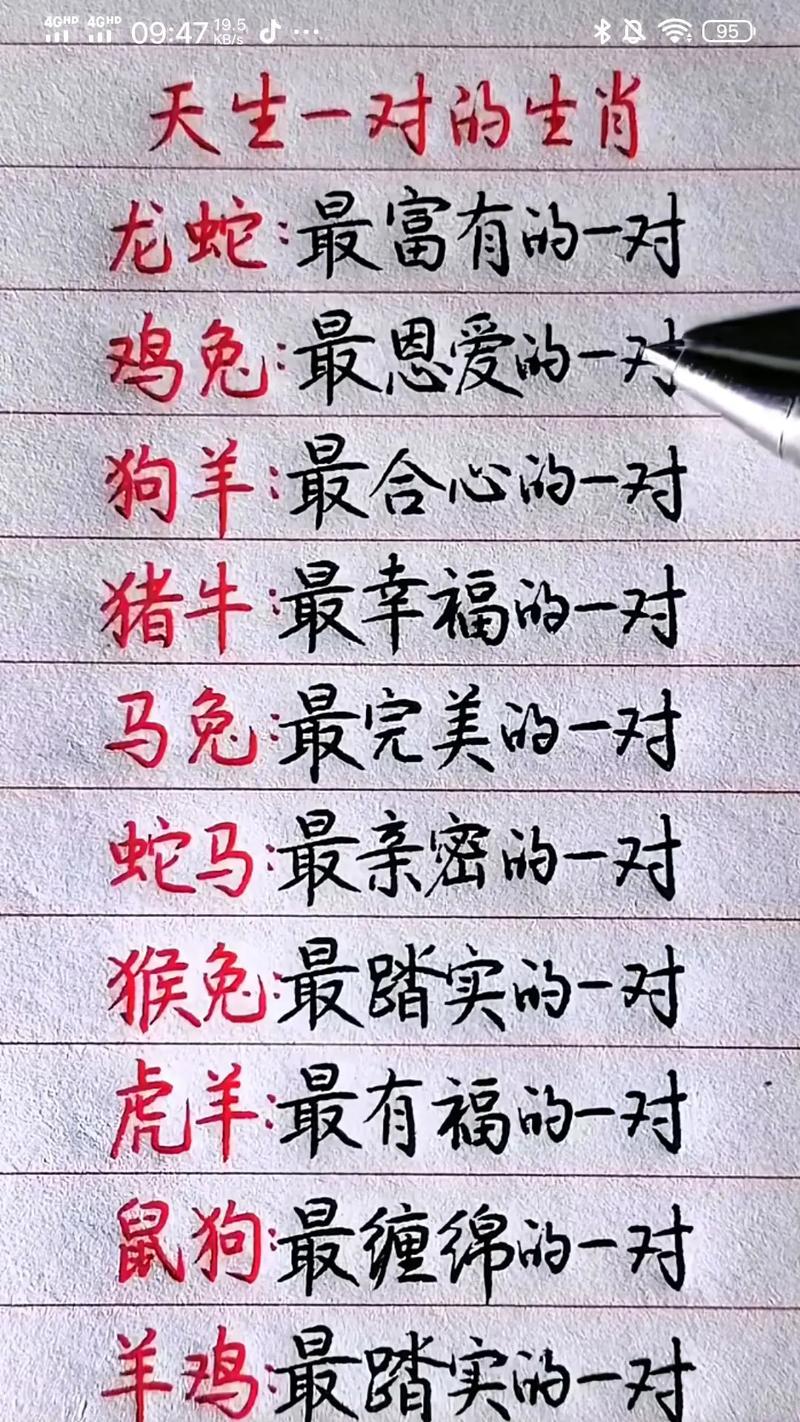 4GHD 4GHD 09:47 19.5 KB/s 95
天生一对的生肖
龙蛇:最富有的一对
鸡兔:最恩爱的一对
狗羊:最合心的一对
猪牛:最幸福的一对
马兔:最完美的一对
蛇马:最亲密的一对
猴兔:最踏实的一对
虎羊:最有福的一对
鼠狗:最缠绵的一对
羊鸡:最踏实的一对